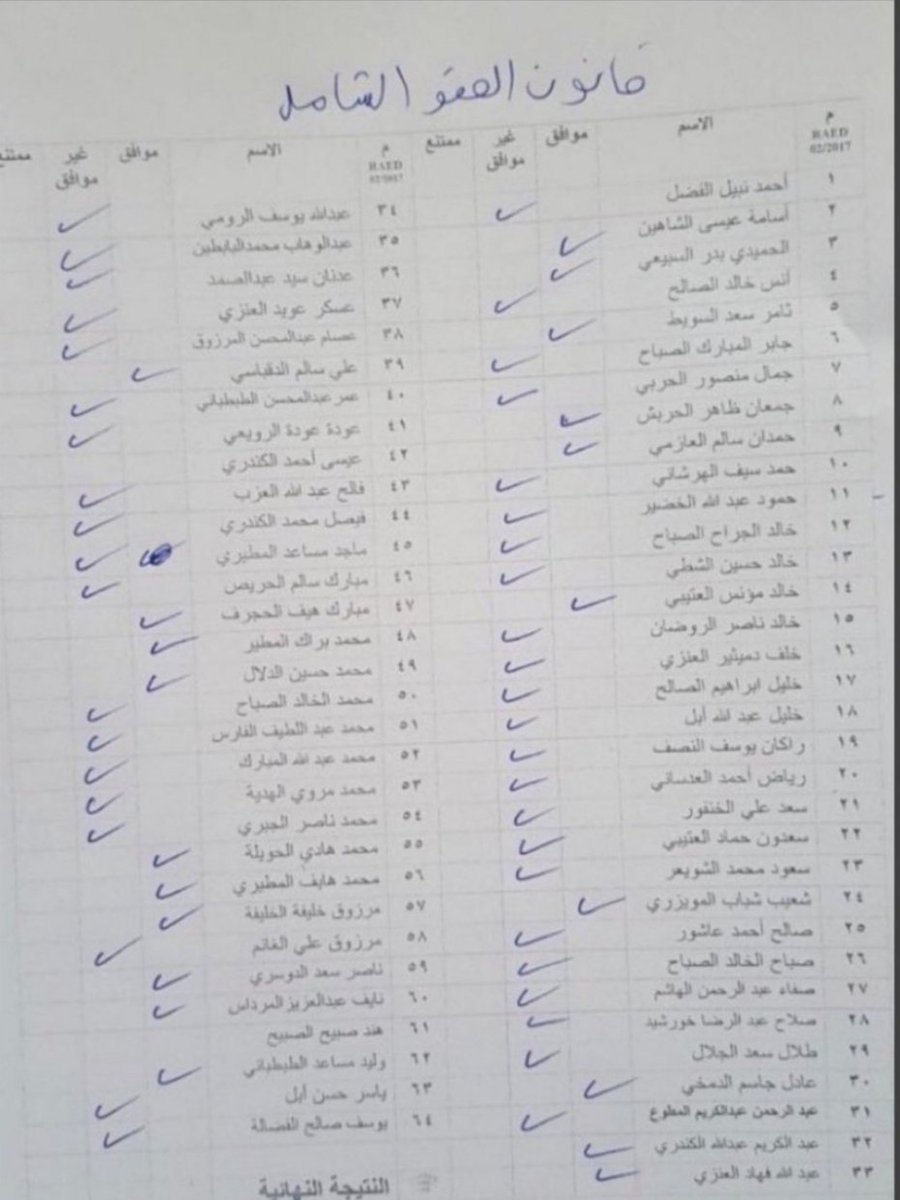 قانون العفو الشامل
م RAED 02/2017 الاسم موافق غير موافق ممتنع
١ أحمد نبيل الفضل
٢ أسامة عيسى الشاهين
٣ الحميدي بدر السبيعي
٤ أنس خالد الصالح
٥ ثامر سعد السويط
٦ جابر المبارك الصباح
٧ جمال منصور الحربي
٨ جمعان ظاهر الحربش
٩ حمدان سالم العازمي
١٠ حمد سيف الهرشاني
١١ حمود عبد الله الخضير
١٢ خالد الجراح الصباح
١٣ خالد حسين الشطي
١٤ خالد مؤنس العتيبي
١٥ خالد ناصر الروضان
١٦ خلف دميثير العنزي
١٧ خليل ابراهيم الصالح
١٨ خليل عبد الله أبل
١٩ راكان يوسف النصف
٢٠ رياض أحمد العدساني
٢١ سعد علي الخنفور
٢٢ سعدون حماد العتيبي
٢٣ سعود محمد الشويعر
٢٤ شعيب شباب المويزري
٢٥ صالح أحمد عاشور
٢٦ صباح الخالد الصباح
٢٧ صفاء عبد الرحمن الهاشم
٢٨ صلاح عبد الرضا خورشيد
٢٩ طلال سعد الجلال
٣٠ عادل جاسم الدمخي
٣١ عبد الرحمن عبدالكريم المطوع
٣٢ عبد الكريم عبدالله الكندري
٣٣ عبد الله فهاد العنزي
م RAED 02/2017 الاسم موافق غير موافق ممتنع
٣٤ عبدالله يوسف الرومي
٣٥ عبدالوهاب محمدالبابطين
٣٦ عدنان سيد عبدالصمد
٣٧ عسكر عويد العنزي
٣٨ عصام عبدالمحسن المرزوق
٣٩ علي سالم الدقباسي
٤٠ عمر عبدالمحسن الطبطبائي
٤١ عودة عودة الرويعي
٤٢ عيسى أحمد الكندري
٤٣ فالح عبد الله العزب
٤٤ فيصل محمد الكندري
٤٥ ماجد مساعد المطيري
٤٦ مبارك سالم الحريص
٤٧ مبارك هيف الحجرف
٤٨ محمد براك المطير
٤٩ محمد حسين الدلال
٥٠ محمد الخالد الصباح
٥١ محمد عبد اللطيف الفارس
٥٢ محمد عبد الله المبارك
٥٣ محمد مروي الهدية
٥٤ محمد ناصر الجبري
٥٥ محمد هادي الحويلة
٥٦ محمد هايف المطيري
٥٧ مرزوق خليفة الخليفة
٥٨ مرزوق علي الغانم
٥٩ ناصر سعد الدوسري
٦٠ نايف عبدالعزيز المرداس
٦١ هند صبيح الصبيح
٦٢ وليد مساعد الطبطبائي
٦٣ ياسر حسن أبل
٦٤ يوسف صالح الفضالة
النتيجة النهائية